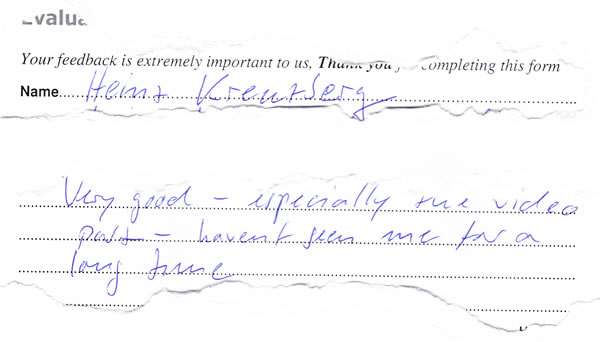 Evalua
Your feedback is extremely important to us, Thank you completing this form
Name Heinz Kreuzberg
Very good – especially the video
part – haven't seen me for a
long time